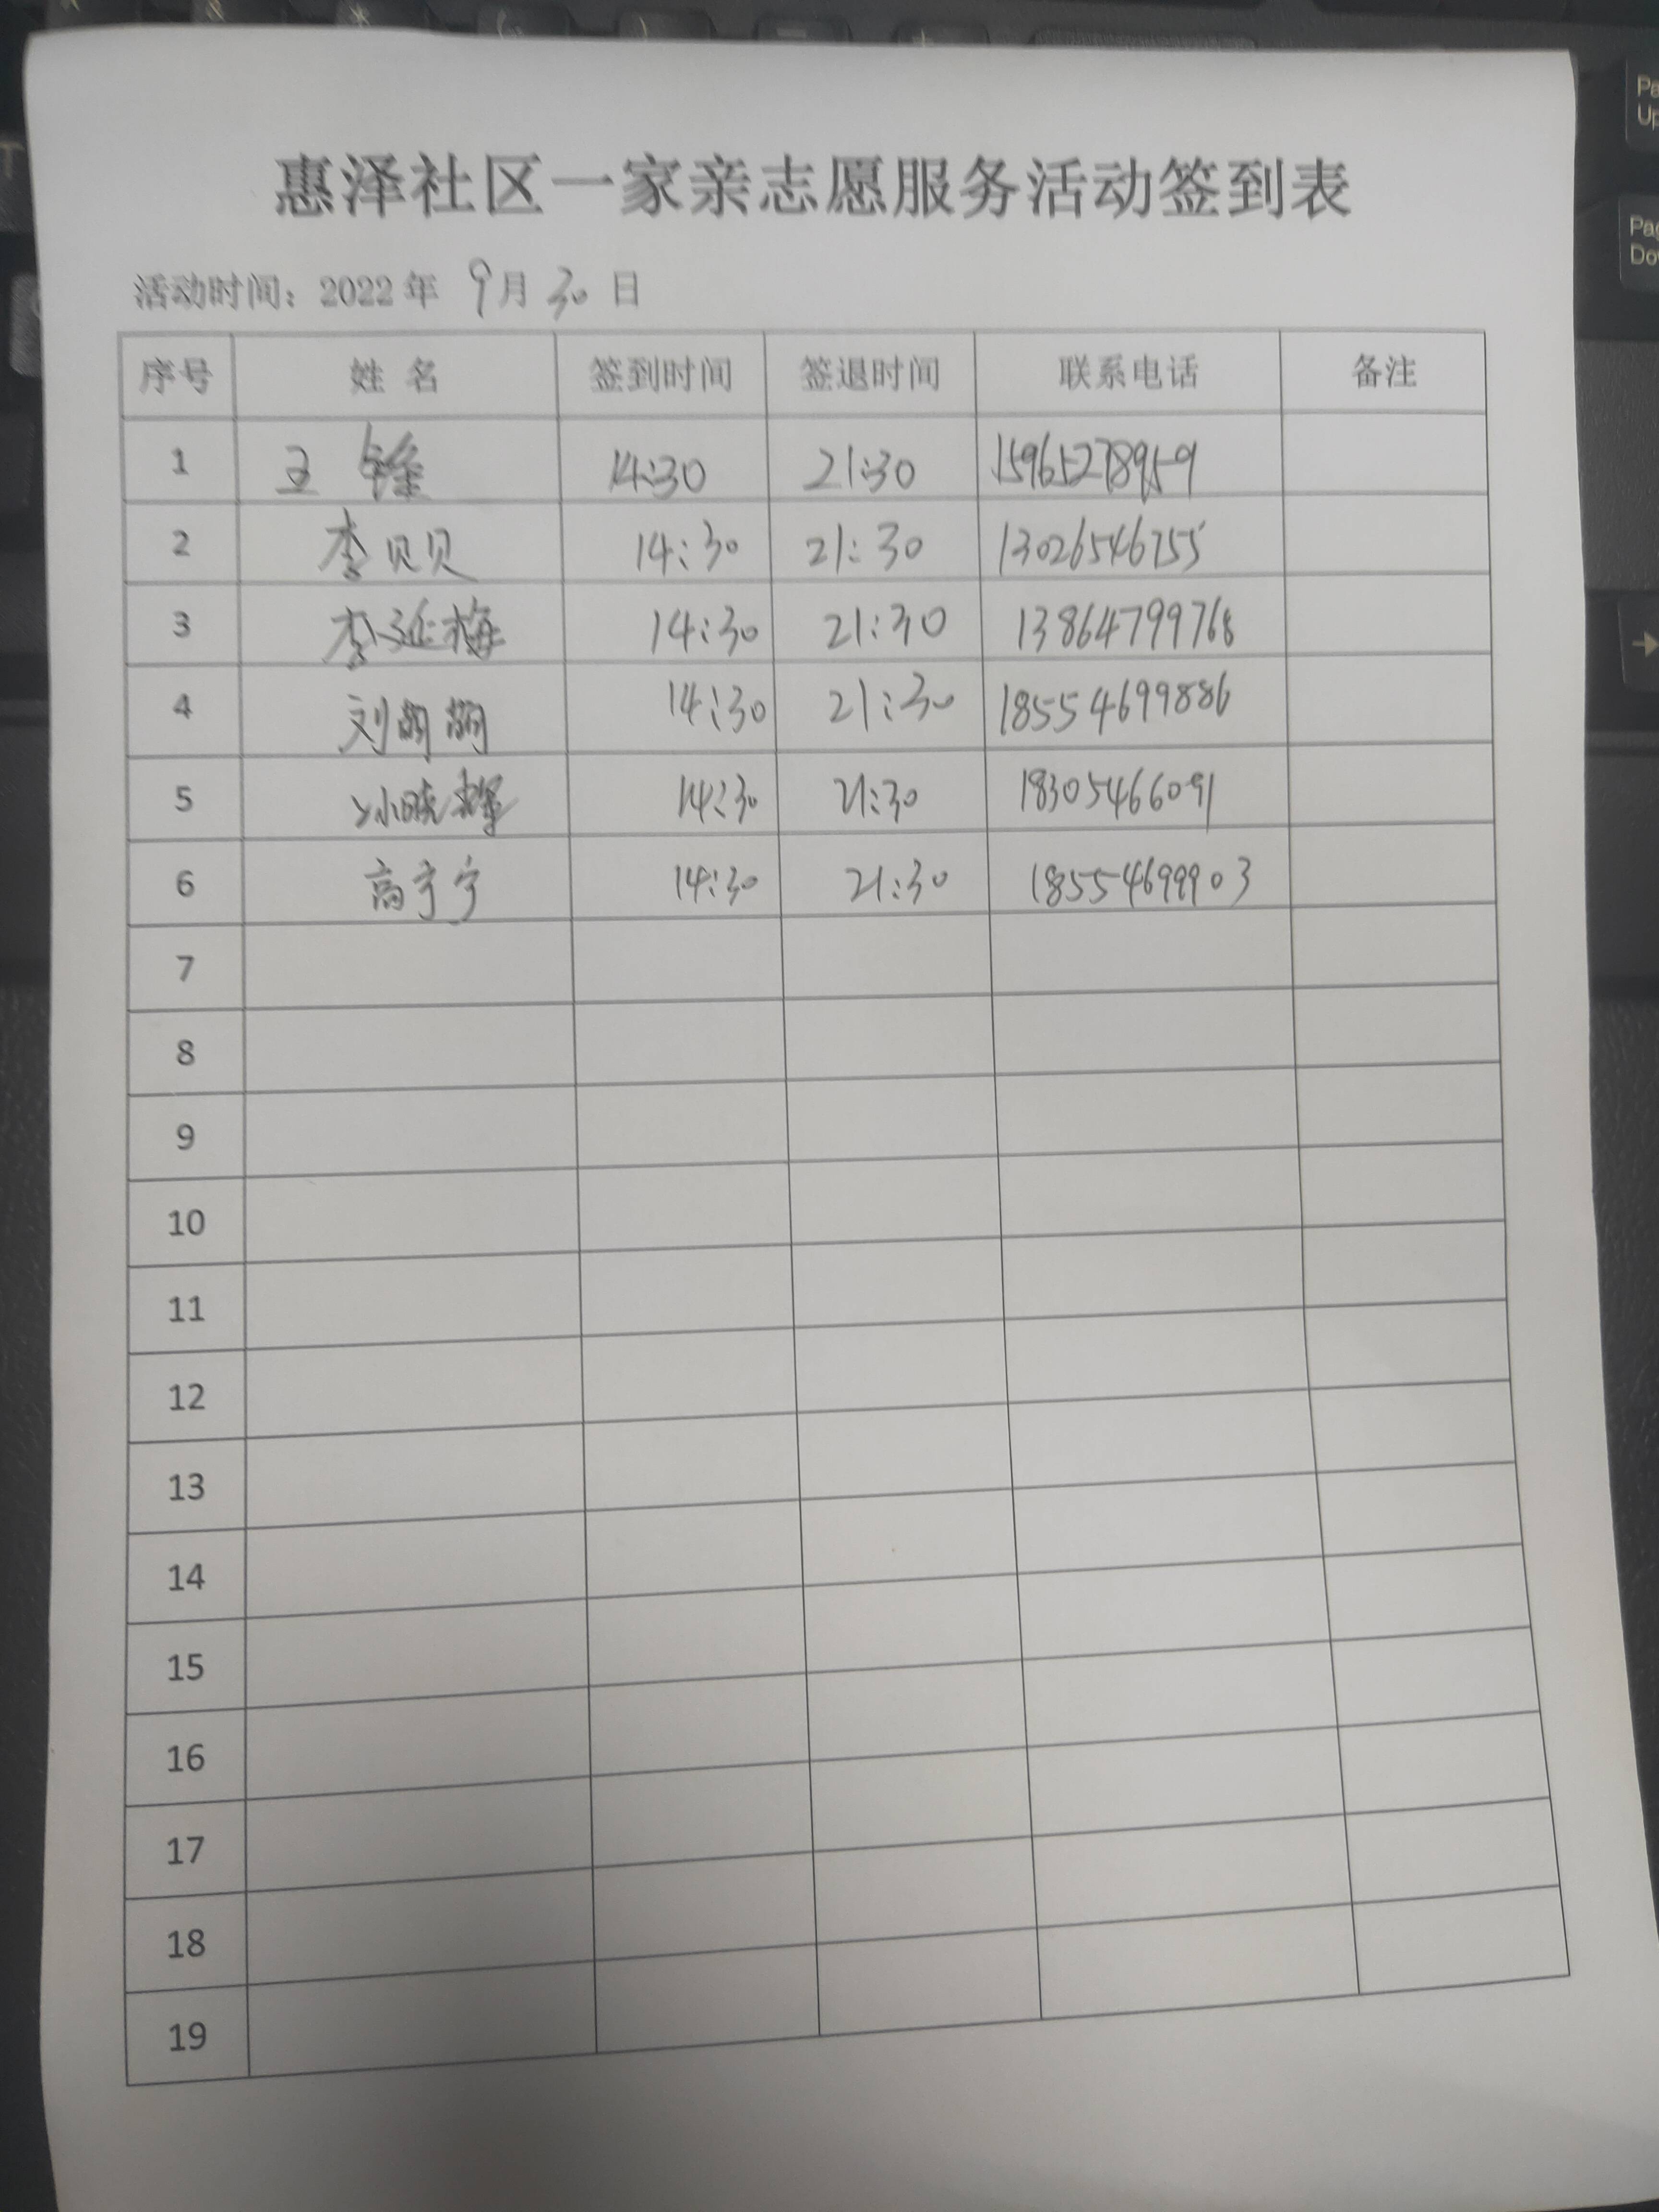 惠泽社区一家亲志愿服务活动签到表
活动时间：2022 年 9月 30 日
序号 姓 名 签到时间 签退时间 联系电话 备注
1 王 锋 14:30 21:30 15965278959
2 李贝贝 14:30 21:30 13026546755
3 李延梅 14:30 21:30 13864799768
4 刘 14:30 21:30 18554699886
5 孙晓 14:30 21:30 18305466091
6 高宁宁 14:30 21:30 18554699903
7
8
9
10
11
12
13
14
15
16
17
18
19
Pa
Up
Pag
Do